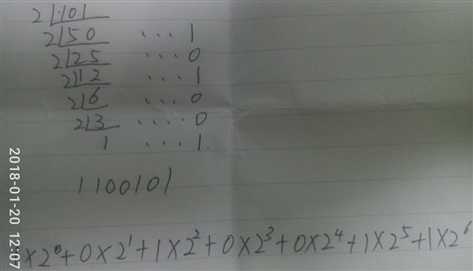 2|101
2|50 ...1
2|25 ...0
2|12 ...1
2|6 ...0
2|3 ....0
1 ....1
1100101
×2⁰+0×2¹+1×2²+0×2³+0×2⁴+1×2⁵+1×2⁶
2018-01-20 12:07